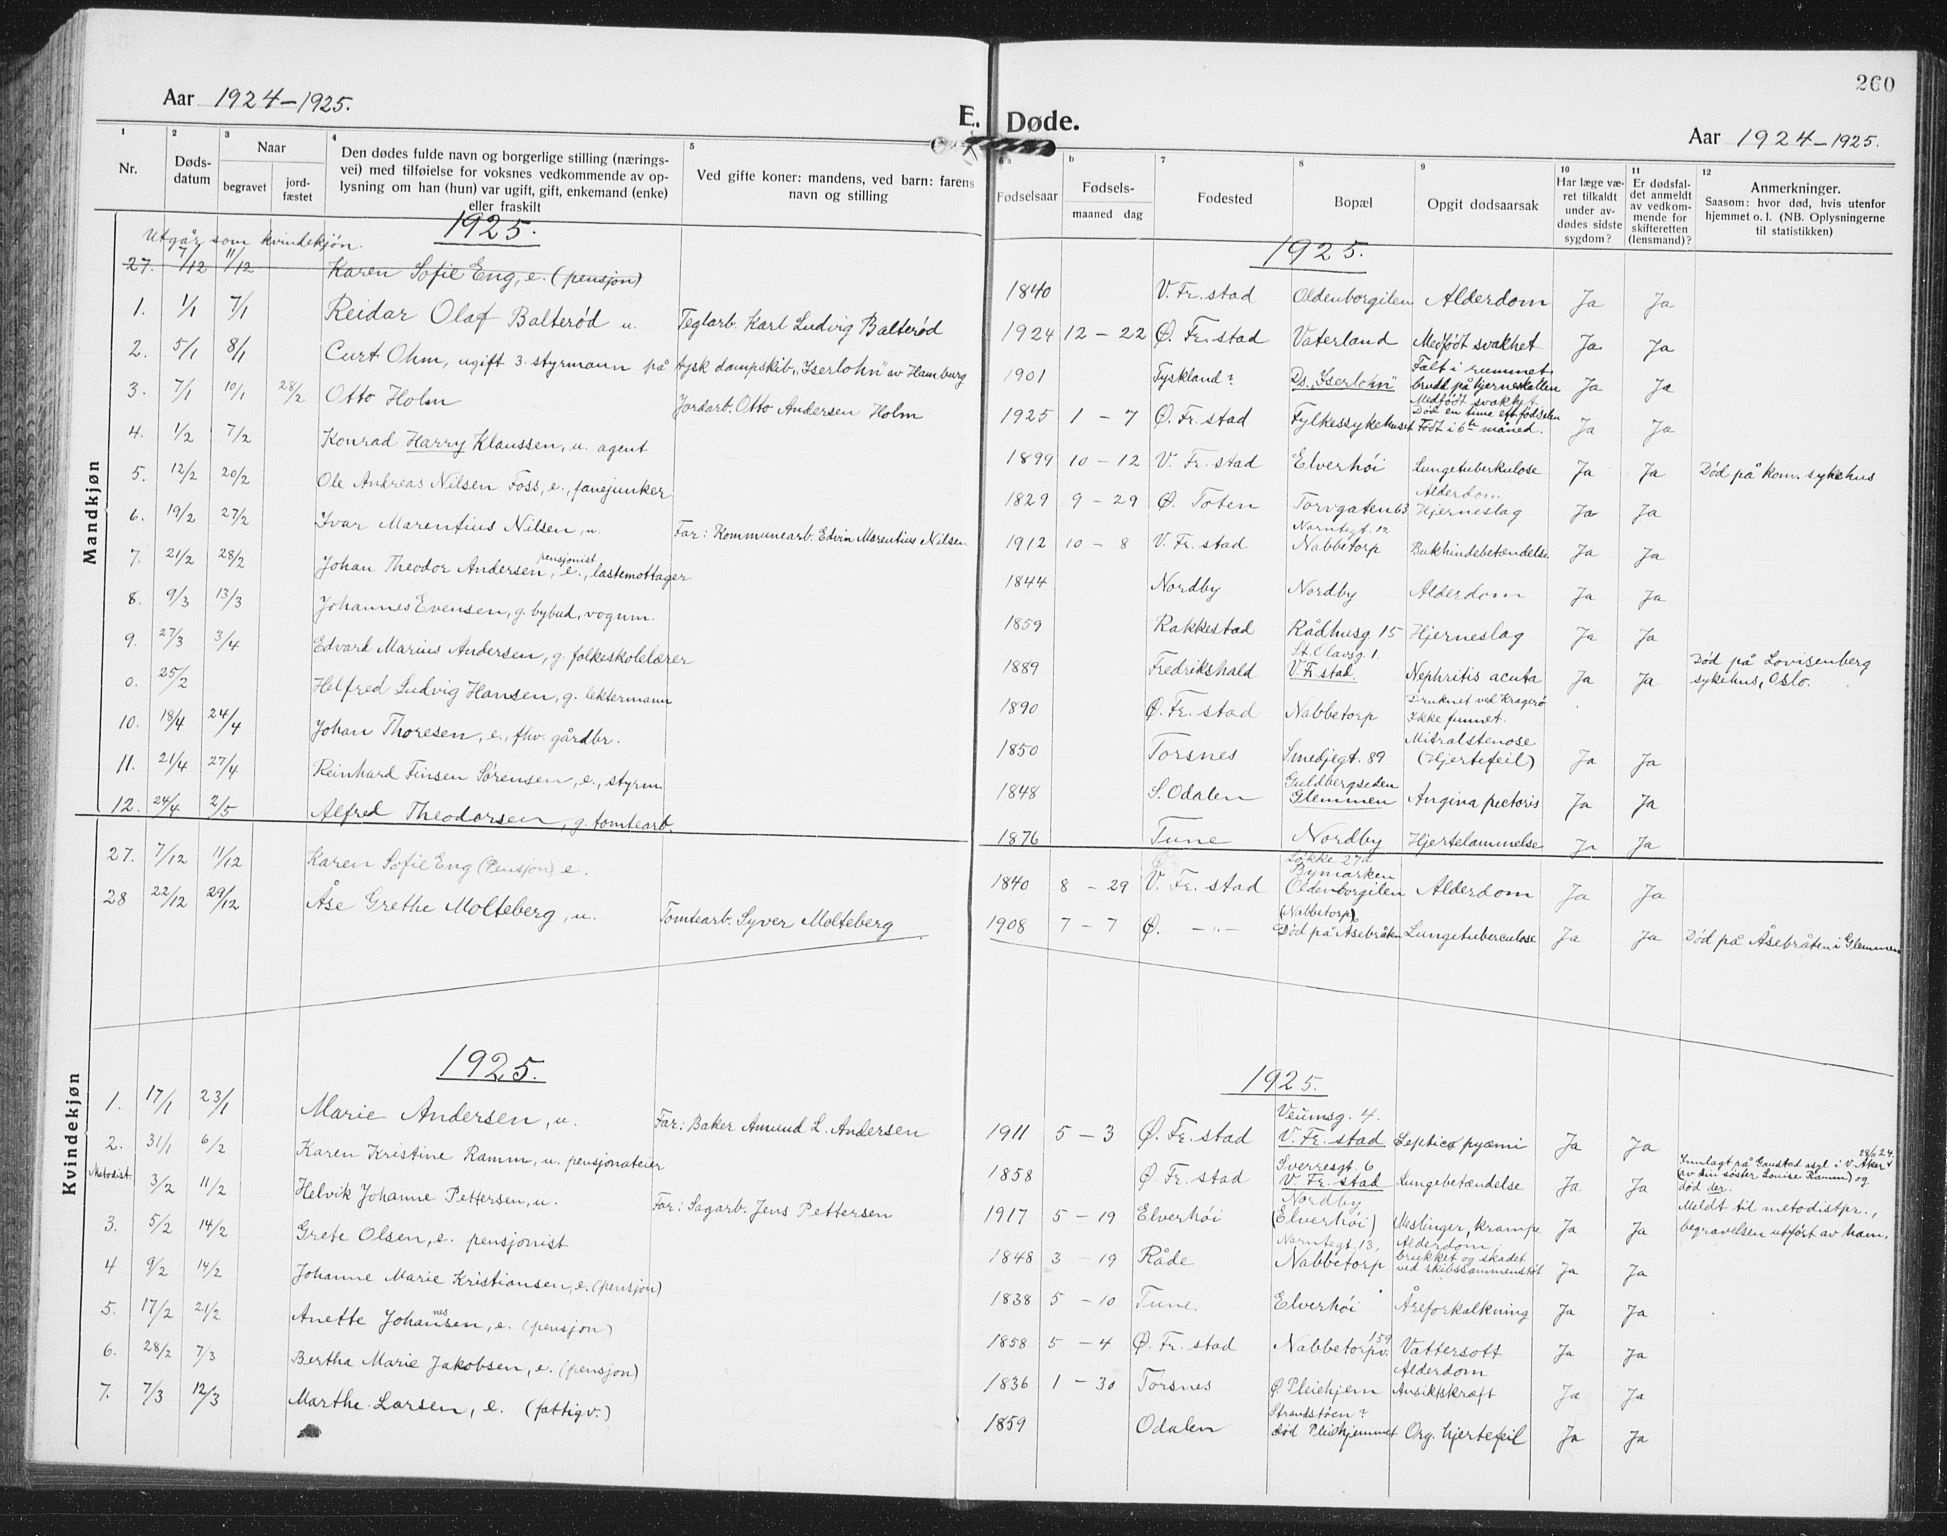 260
Aar 1924-1925.
E. Døde.
Aar 1924-1925.
1 2 3 4 5 6 a b 7 8 9 10 11 12
Nr.
Døds-
datum
Naar
begravet
jord-
fæstet
Den dødes fulde navn og borgerlige stilling (nærings-
vei) med tilføielse for voksnes vedkommende av op-
lysning om han (hun) var ugift, gift, enkemand (enke)
eller fraskilt
Ved gifte koner: mandens, ved barn: farens
navn og stilling
Fødselsaar
Fødsels-
maaned dag
Fødested
Bopæl
Opgit dødsaarsak
Har læge væ-
ret tilkaldt
under av-
dødes sidste
sygdom?
Er dødsfal-
det anmeldt
av vedkom-
mende for
skifteretten
(lensmand)?
Anmerkninger.
Saasom: hvor død, hvis utenfor
hjemmet o. l. (NB. Oplysningerne
til statistikken)
Mandkjøn
1925.
1925.
Utgår som kvindekjøn.
27. 7/12 11/12 Karen Sofie Eng, e. (pensjon) 1840 V. Fr.stad Oldenborgilen Alderdom Ja Ja
1. 1/1 7/1 Reidar Olaf Balterød u. Teglarb. Karl Ludvig Balterød 1924 12 - 22 Ø. Fr.stad Vaterland Medfødt svakhet Ja Ja
2. 5/1 8/1 Curt Ohm, ugift 3. styrmann på tysk dampskib "Iserlohn" av Hamburg 1901 Tyskland? Ds. "Iserlohn" Falt i rummet
brudd på hjerneskallen Ja Ja
3. 7/1 10/1 28/2 Otto Holm Jordarb. Otto Andersen Holm 1925 1 - 7 Ø. Fr.stad Fylkessykehuset Medfødt svakh.
Død en time eft. fødselen
Født i 6te måned. Ja Ja
4. 1/2 7/2 Konrad Harry Klaussen, u. agent 1899 10 - 12 V. Fr.stad Elverhøi Lungetuberkulose Ja Ja Død på kom. sykehus
5. 12/2 20/2 Ole Andreas Nilsen Foss, e., fanejunker 1829 9 - 29 Ø. Toten Torvgaten 63 Alderdom
Hjerneslag Ja Ja
6. 19/2 27/2 Ivar Marentius Nilsen, u. Far: Kommunearb. Edvin Marentius Nilsen 1912 10 - 8 V. Fr.stad Norntegt. 12
Nabbetorp Bukhindebetændelse Ja Ja
7. 21/2 28/2 Johan Theodor Andersen, pensjonist e., lastemottager 1844 Nordby Nordby Alderdom Ja Ja
8. 9/3 13/3 Johannes Evensen, g. bybud, vognm. 1859 Rakkestad Rådhusg. 15 Hjerneslag Ja Ja
9. 27/3 3/4 Edvard Marius Andersen, g. folkeskolelærer 1889 Fredrikshald St. Olavsg. 1.
V. Fr.stad Nephritis acuta Ja Ja Død på Lovisenberg
sykehus, Oslo.
0. 25/2 Helfred Ludvig Hansen, g. lektermann 1890 Ø. Fr.stad Nabbetorp Druknet ved Kragerø
Ikke funnet.
10. 18/4 24/4 Johan Thoresen, e., fhv. gårdbr. 1850 Torsnes Smedjegt. 89 Mitralstenose
(Hjertefeil) Ja Ja
11. 21/4 27/4 Reinhard Finsen Sørensen, e., styrm. 1848 S. Odalen Guldbergseden
Glemmen Angina pectoris Ja Ja
12. 24/4 2/5 Alfred Theodorsen, g. tomtearb. 1876 Tune Nordby Hjertelammelse Ja Ja
27. 7/12 11/12 Karen Sofie Eng (Pensjon) e. 1840 8 - 29 V. Fr.stad Løkke 27d
Bymarken
Oldenborgilen Alderdom Ja Ja
28 22/12 29/12 Åse Grethe Molteberg, u. Tomtearb. Syver Molteberg 1908 7 - 7 Ø. -"- (Nabbetorp)
Død på Åsebråten Lungetuberculose Ja Ja Død på Åsebråten i Glemmen
Kvindekjøn
1925.
1925.
1. 17/1 23/1 Marie Andersen, u. Far: Baker Amund L. Andersen 1911 5 - 3 Ø. Fr.stad Veumsg. 4.
V. Fr.stad Septico pyæmi Ja Ja
2. 31/1 6/2 Karen Kristine Ramm, u. pensjonateier 1858 Ø. Fr.stad Sverresgt. 6
V. Fr.stad Lungebetændelse Ja Ja Innlagt på Gaustad asyl i V. Aker
(av sin søster Louise Ramm) og
død der.
Metodist. 3/2 11/2 Helvik Johanne Pettersen, u. Far: Sagarb. Jens Pettersen 1917 5 - 19 Elverhøi Nordby
(Elverhøi) Meslinger, krampe Ja Ja Meldt til metodistpr.,
begravelsen utført av ham.
3. 5/2 14/2 Grete Olsen, e. pensjonist 1848 3 - 19 Råde Norntegt. 13,
Nabbetorp Alderdom,
brukket og skadet
ved skibssammenstøt Ja Ja
4 9/2 14/2 Johanne Marie Kristiansen, e. (pensjon) 1838 5 - 10 Tune Elverhøi Åreforkalkning Ja Ja
5. 17/2 21/2 Anette Johansen, nes e. (pensjon) 1858 5 - 4 Ø. Fr.stad Nabbetorpv. 159 Vattersott Ja Ja
6. 28/2 7/3 Bertha Marie Jakobsen, e. (pensjon) 1836 1 - 30 Torsnes Ø. Pleiehjem Alderdom
Ansiktskræft Ja Ja
7. 7/3 12/3 Marthe Larsen, e. (fattigv.) 1859 Odalen Strandstøen?
død Pleiehjemmet Org. hjertefeil Ja Ja